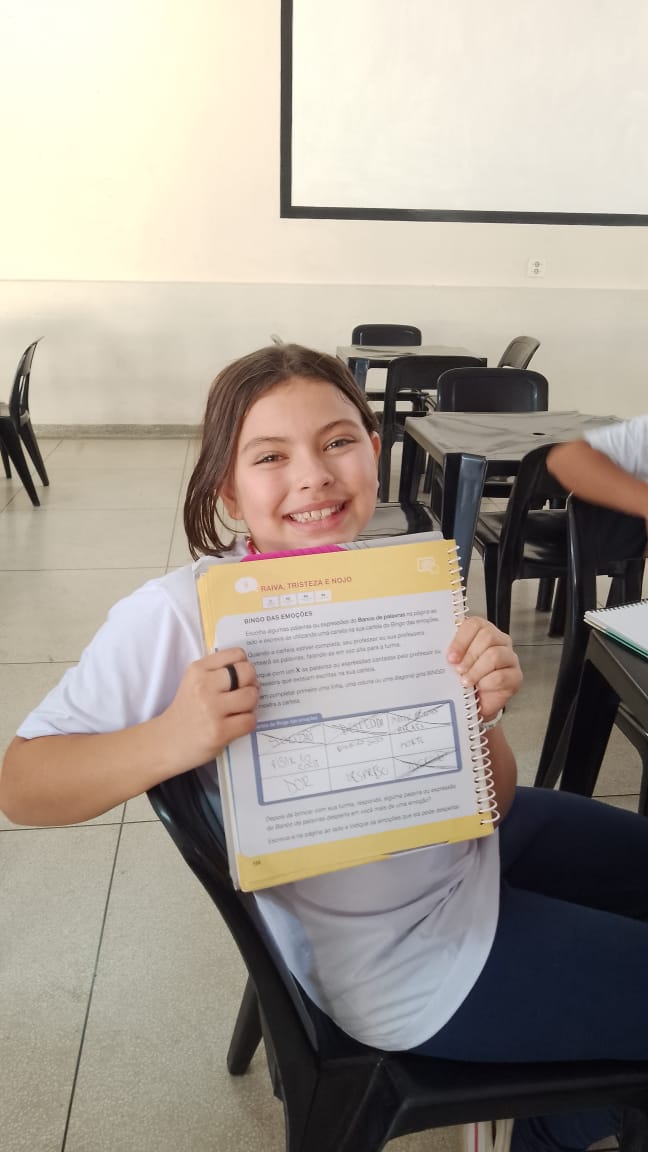 RAIVA, TRISTEZA E NOJO
BINGO DAS EMOÇÕES
Escolha algumas palavras ou expressões do Banco de palavras na página ao
lado e escreva-as utilizando uma caneta na sua cartela do Bingo das emoções.
Quando a cartela estiver completa, seu professor ou sua professora
as palavras, falando-as em voz alta para a turma.
com um X as palavras ou expressões cantadas pelo professor ou
que estejam escritas na sua cartela.
completar primeiro uma linha, uma coluna ou uma diagonal grita BINGO!
mostra a cartela.
de Bingo das emoções
MORTE
DOR DESPREZO
Depois de brincar com sua turma, responda: alguma palavra ou expressão
do Banco de palavras desperta em você mais de uma emoção?
Escreva-a na página ao lado e indique as emoções que ela pode despertar.